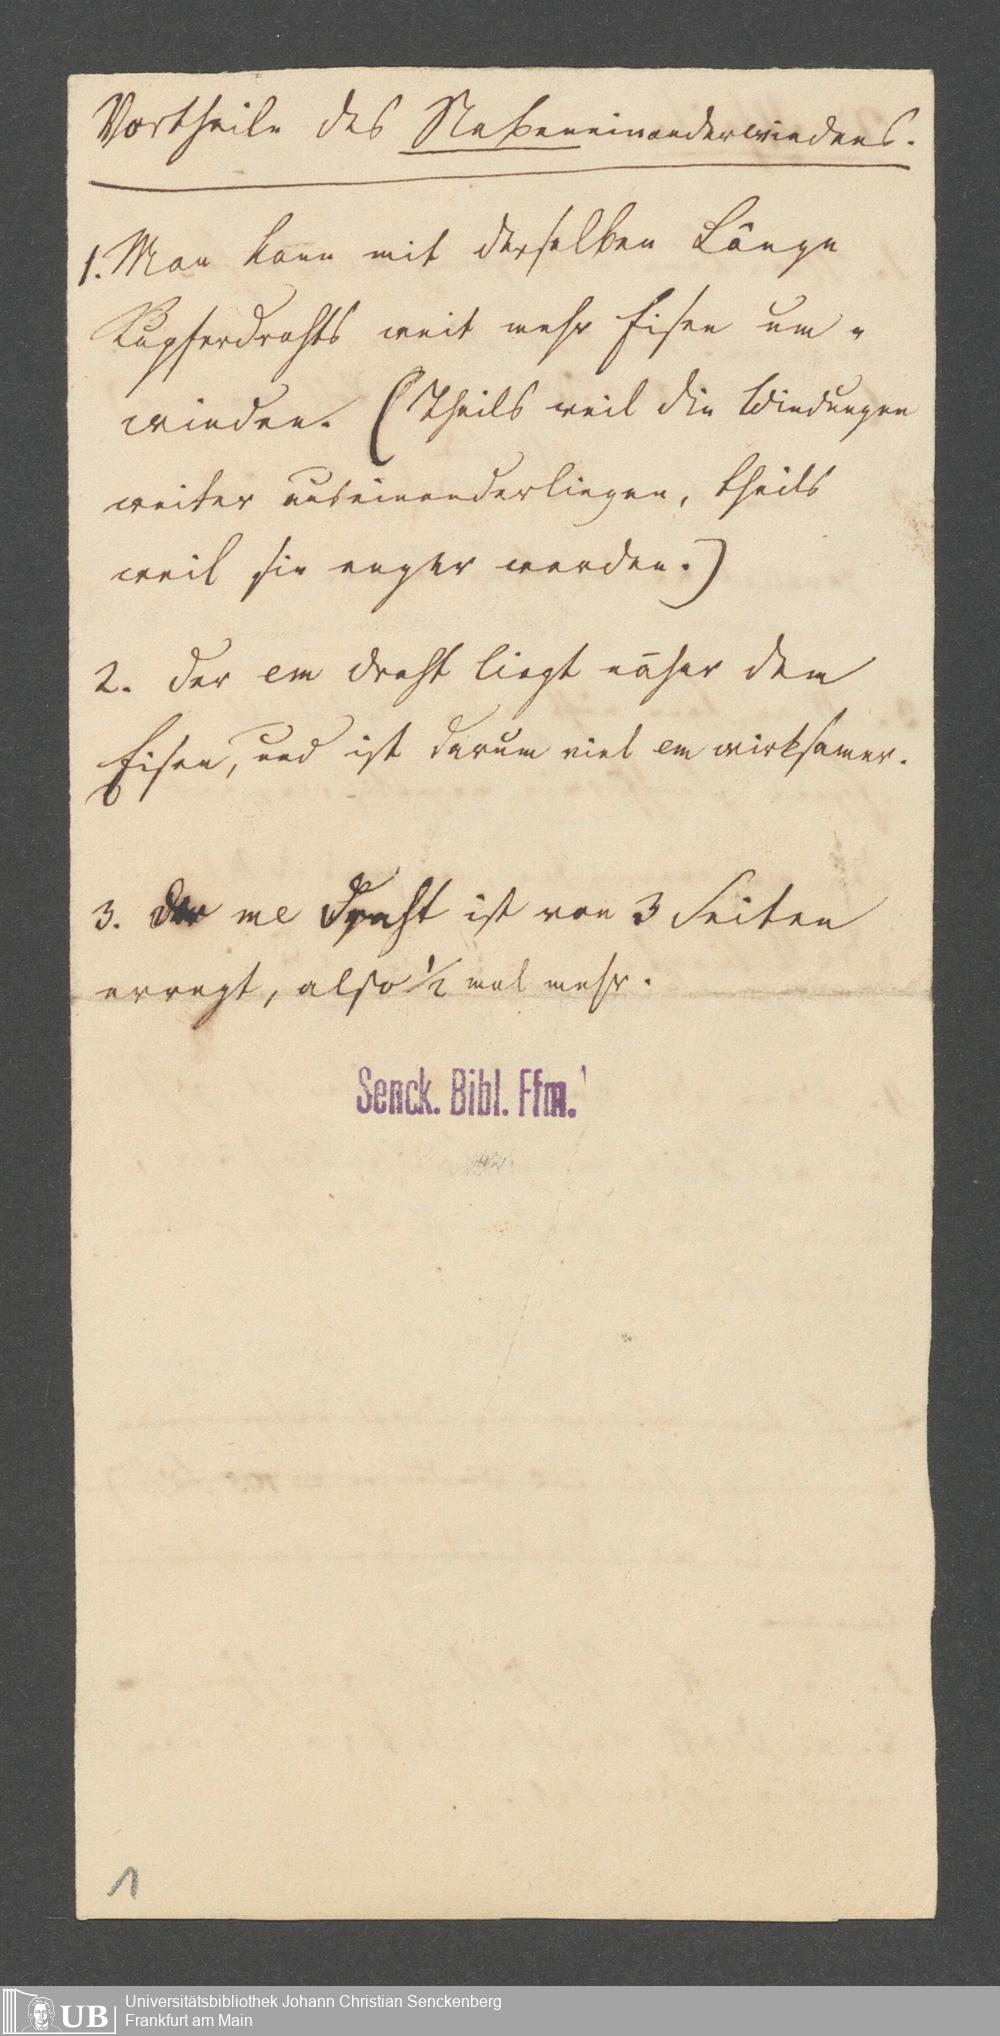 Vortheile des Nebeneinanderwindens.
1. Man kann mit derselben Länge
Kupferdrahts weit mehr Eisen um-
winden. (Theils weil die Windungen
weiter auseinanderliegen, theils
weil sie enger werden.)
2. Der em Draht liegt näher dem
Eisen, und ist darum viel em wirksamer.
3. Der me Draht ist von 3 Seiten
erregt, also 1/2 mal mehr.
Senck. Bibl. Ffm.
1
UB
Universitätsbibliothek Johann Christian Senckenberg
Frankfurt am Main